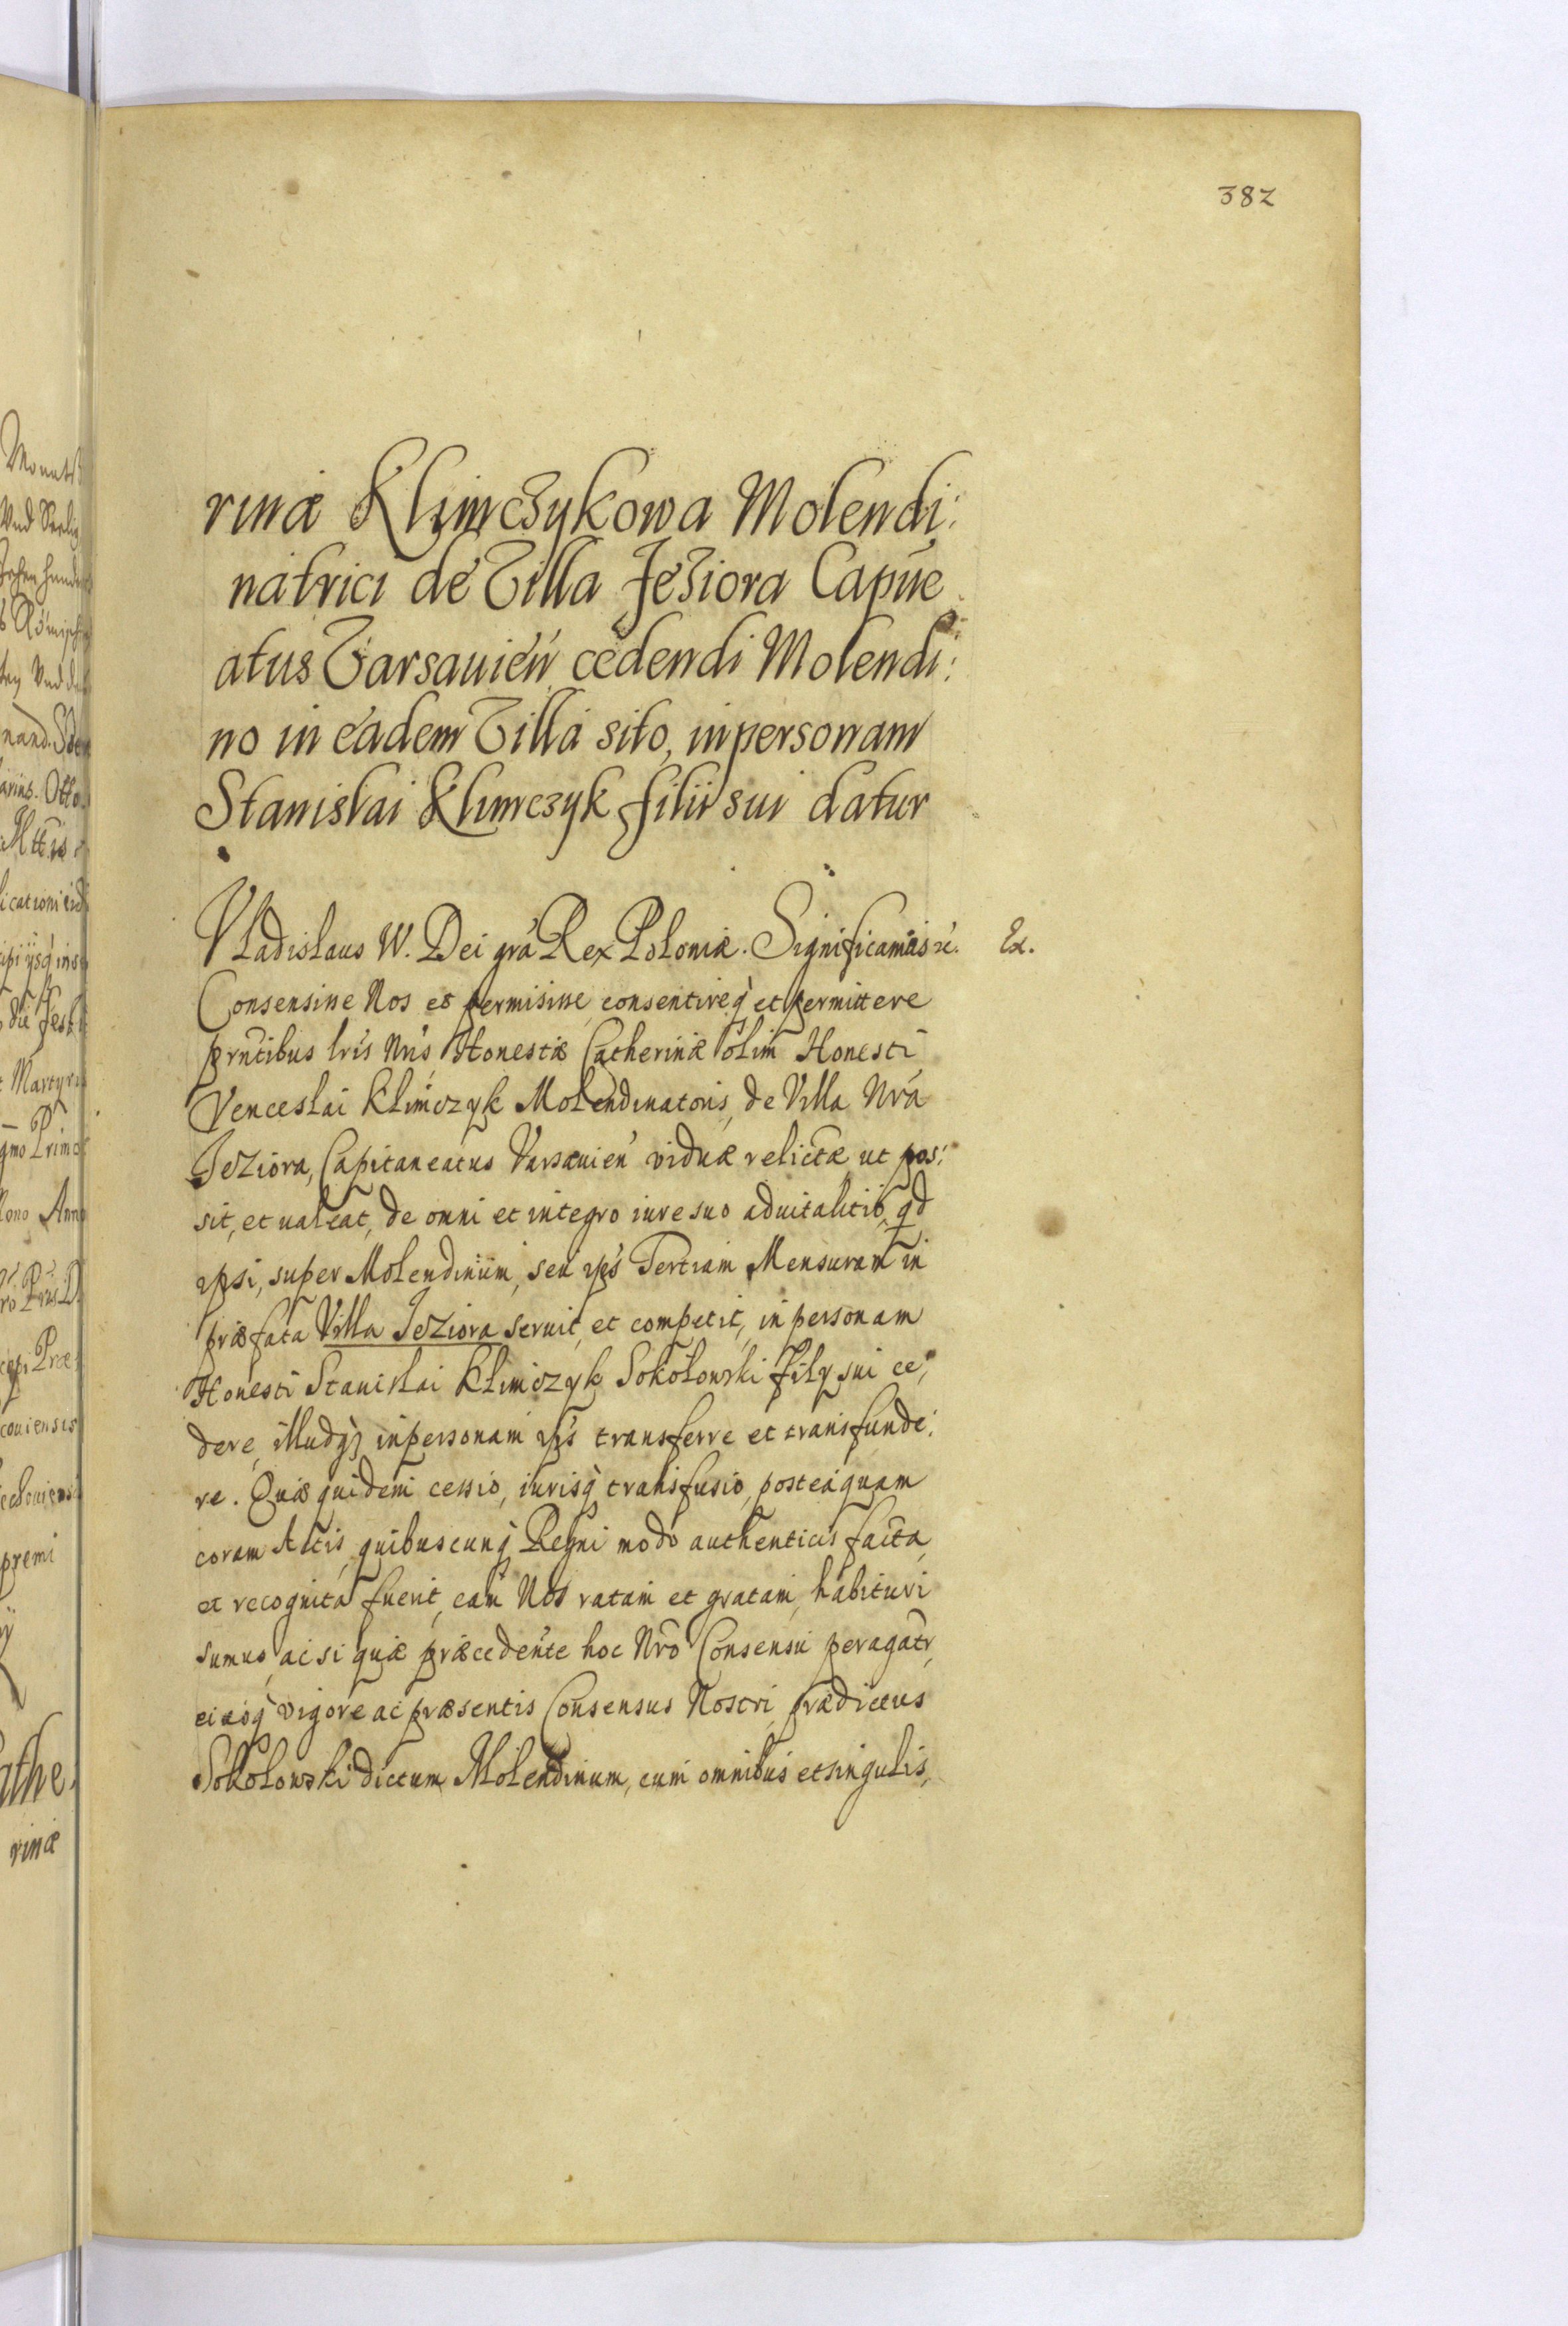 382
rinæ Klimczykowa Molendi:
natrici de Villa Jeziora Capne
atus Varsauien̄ cedendi Molendi:
no in eadem Villa sito, in personam
Stanislai Klimczyk filii sui datur
Vladislaus IV. Dei grā Rex Poloniæ. Significamus &c. Ex.
Consensisse Nos et permisisse consentireq́ et permittere
prn̄tibus lris Nris Honestæ Catherinæ olim Honesti
Venceslai Klimczyk Molendinatoris, de Villa Nrā
Jeziora, Capitaneatus Varsauien̄ viduæ relictæ, ut pos:
sit, et ualeat, de omni et integro iure suo aduitalitio, qd
ipsi, super Molendinum, seu ips Tertiam Mensuram in
præfata Villa Jeziora seruit, et competit, in personam
Honesti Stanislai Klimczyk Sokołowski Filÿ sui ce:
dere, illudq́ in personam ips transferre et transfunde:
re. Quæ quidem cessio, iurisq́ transfusio, posteaquam
coram Actis quibuscunq́ Regni modo authenticis facta,
et recognita fuerit, eam Nos ratam et gratam habituri
sumus, ac si quæ præcedente hoc Nrō Consensu peragatr,
eiusq́ vigore ac præsentis Consensus Nostri, prædictus
Sokołowski dictum Molendinum, cum omnibus et singulis,
Monats
Und
Römisch
nand.
arius. Otto
icationi eid
ipiÿsq́ ins
die fest
Martyri
gmo Princ
ono Anno
Præ:
couiensis
premi
athe:
rinæ